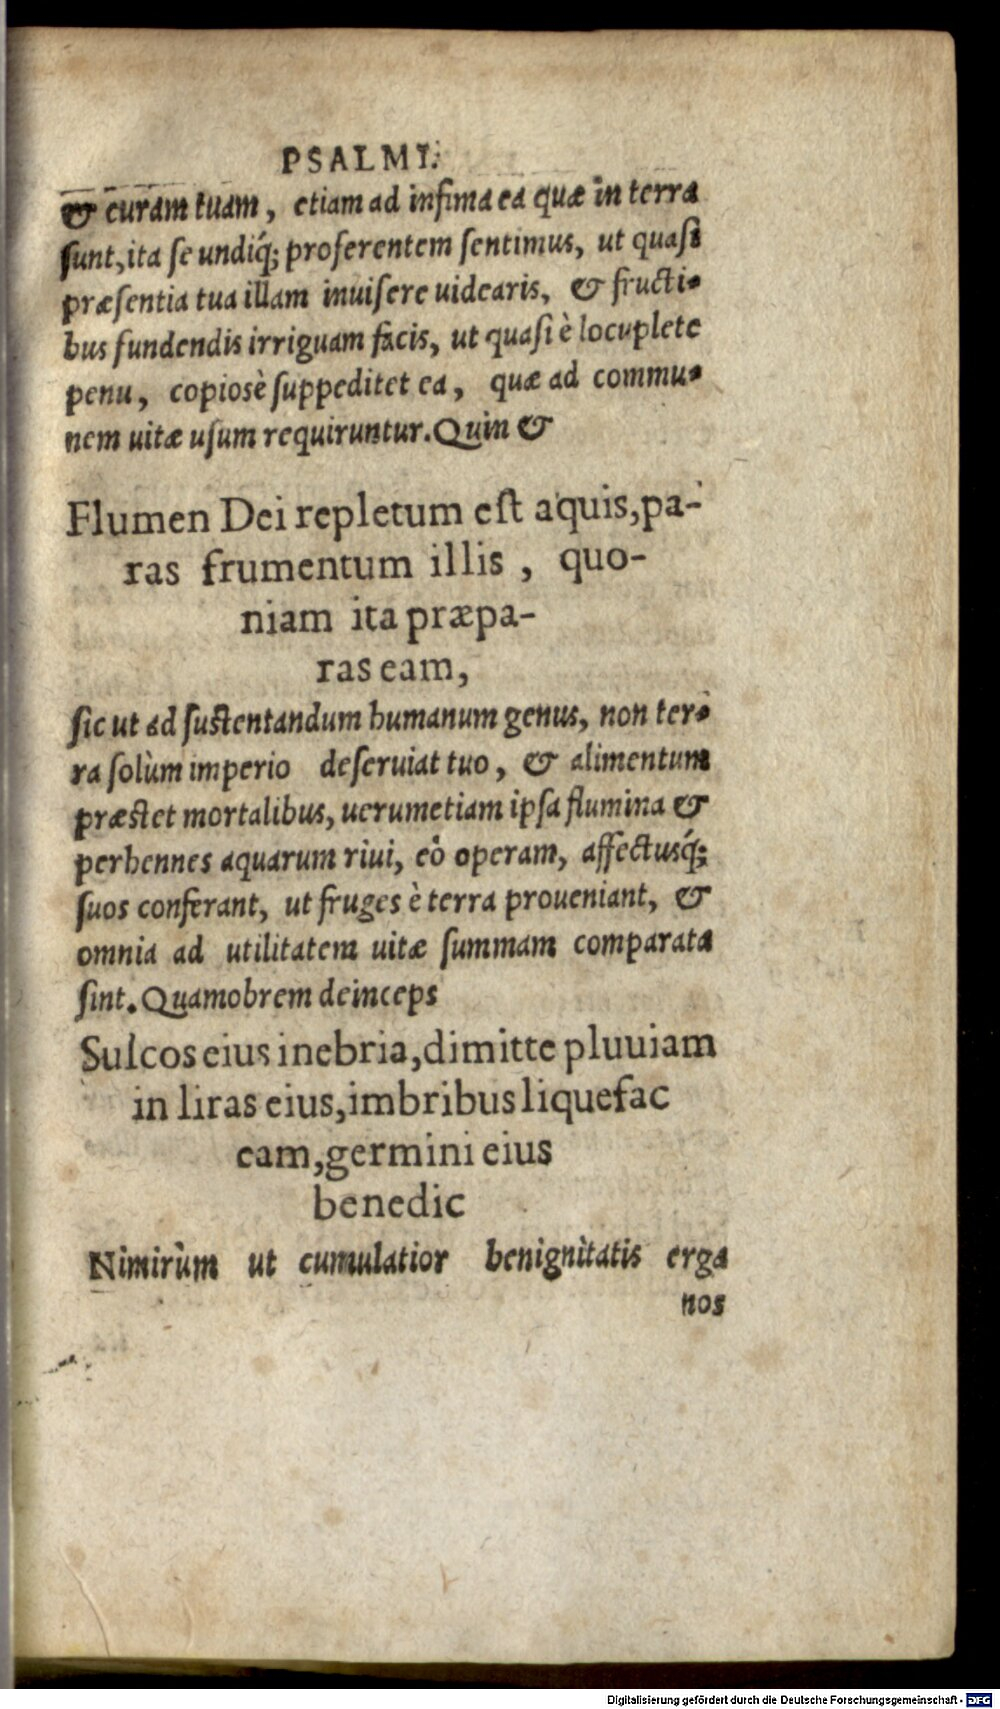 PSALMI.
& curam tuam, etiam ad infima ea quæ in terra
sunt, ita se undiq́; proferentem sentimus, ut quasi
præsentia tua illam inuisere uidearis, & fructi-
bus fundendis irriguam facis, ut quasi è locuplete
penu, copiosè suppeditet ea, quæ ad commu-
nem uitæ usum requiruntur. Quin &
Flumen Dei repletum est aquis, pa-
ras frumentum illis, quo-
niam ita præpa-
ras eam,
sic ut ad sustentandum humanum genus, non ter-
ra solùm imperio deseruiat tuo, & alimentum
præstet mortalibus, uerumetiam ipsa flumina &
perhennes aquarum riui, eò operam, affectusq́;
suos conferant, ut fruges è terra proueniant, &
omnia ad utilitatem uitæ summam comparata
sint. Quamobrem deinceps
Sulcos eius inebria, dimitte pluuiam
in liras eius, imbribus liquefac
eam, germini eius
benedic
Nimirùm ut cumulatior benignitatis erga
nos
Digitalisierung gefördert durch die Deutsche Forschungsgemeinschaft - DFG